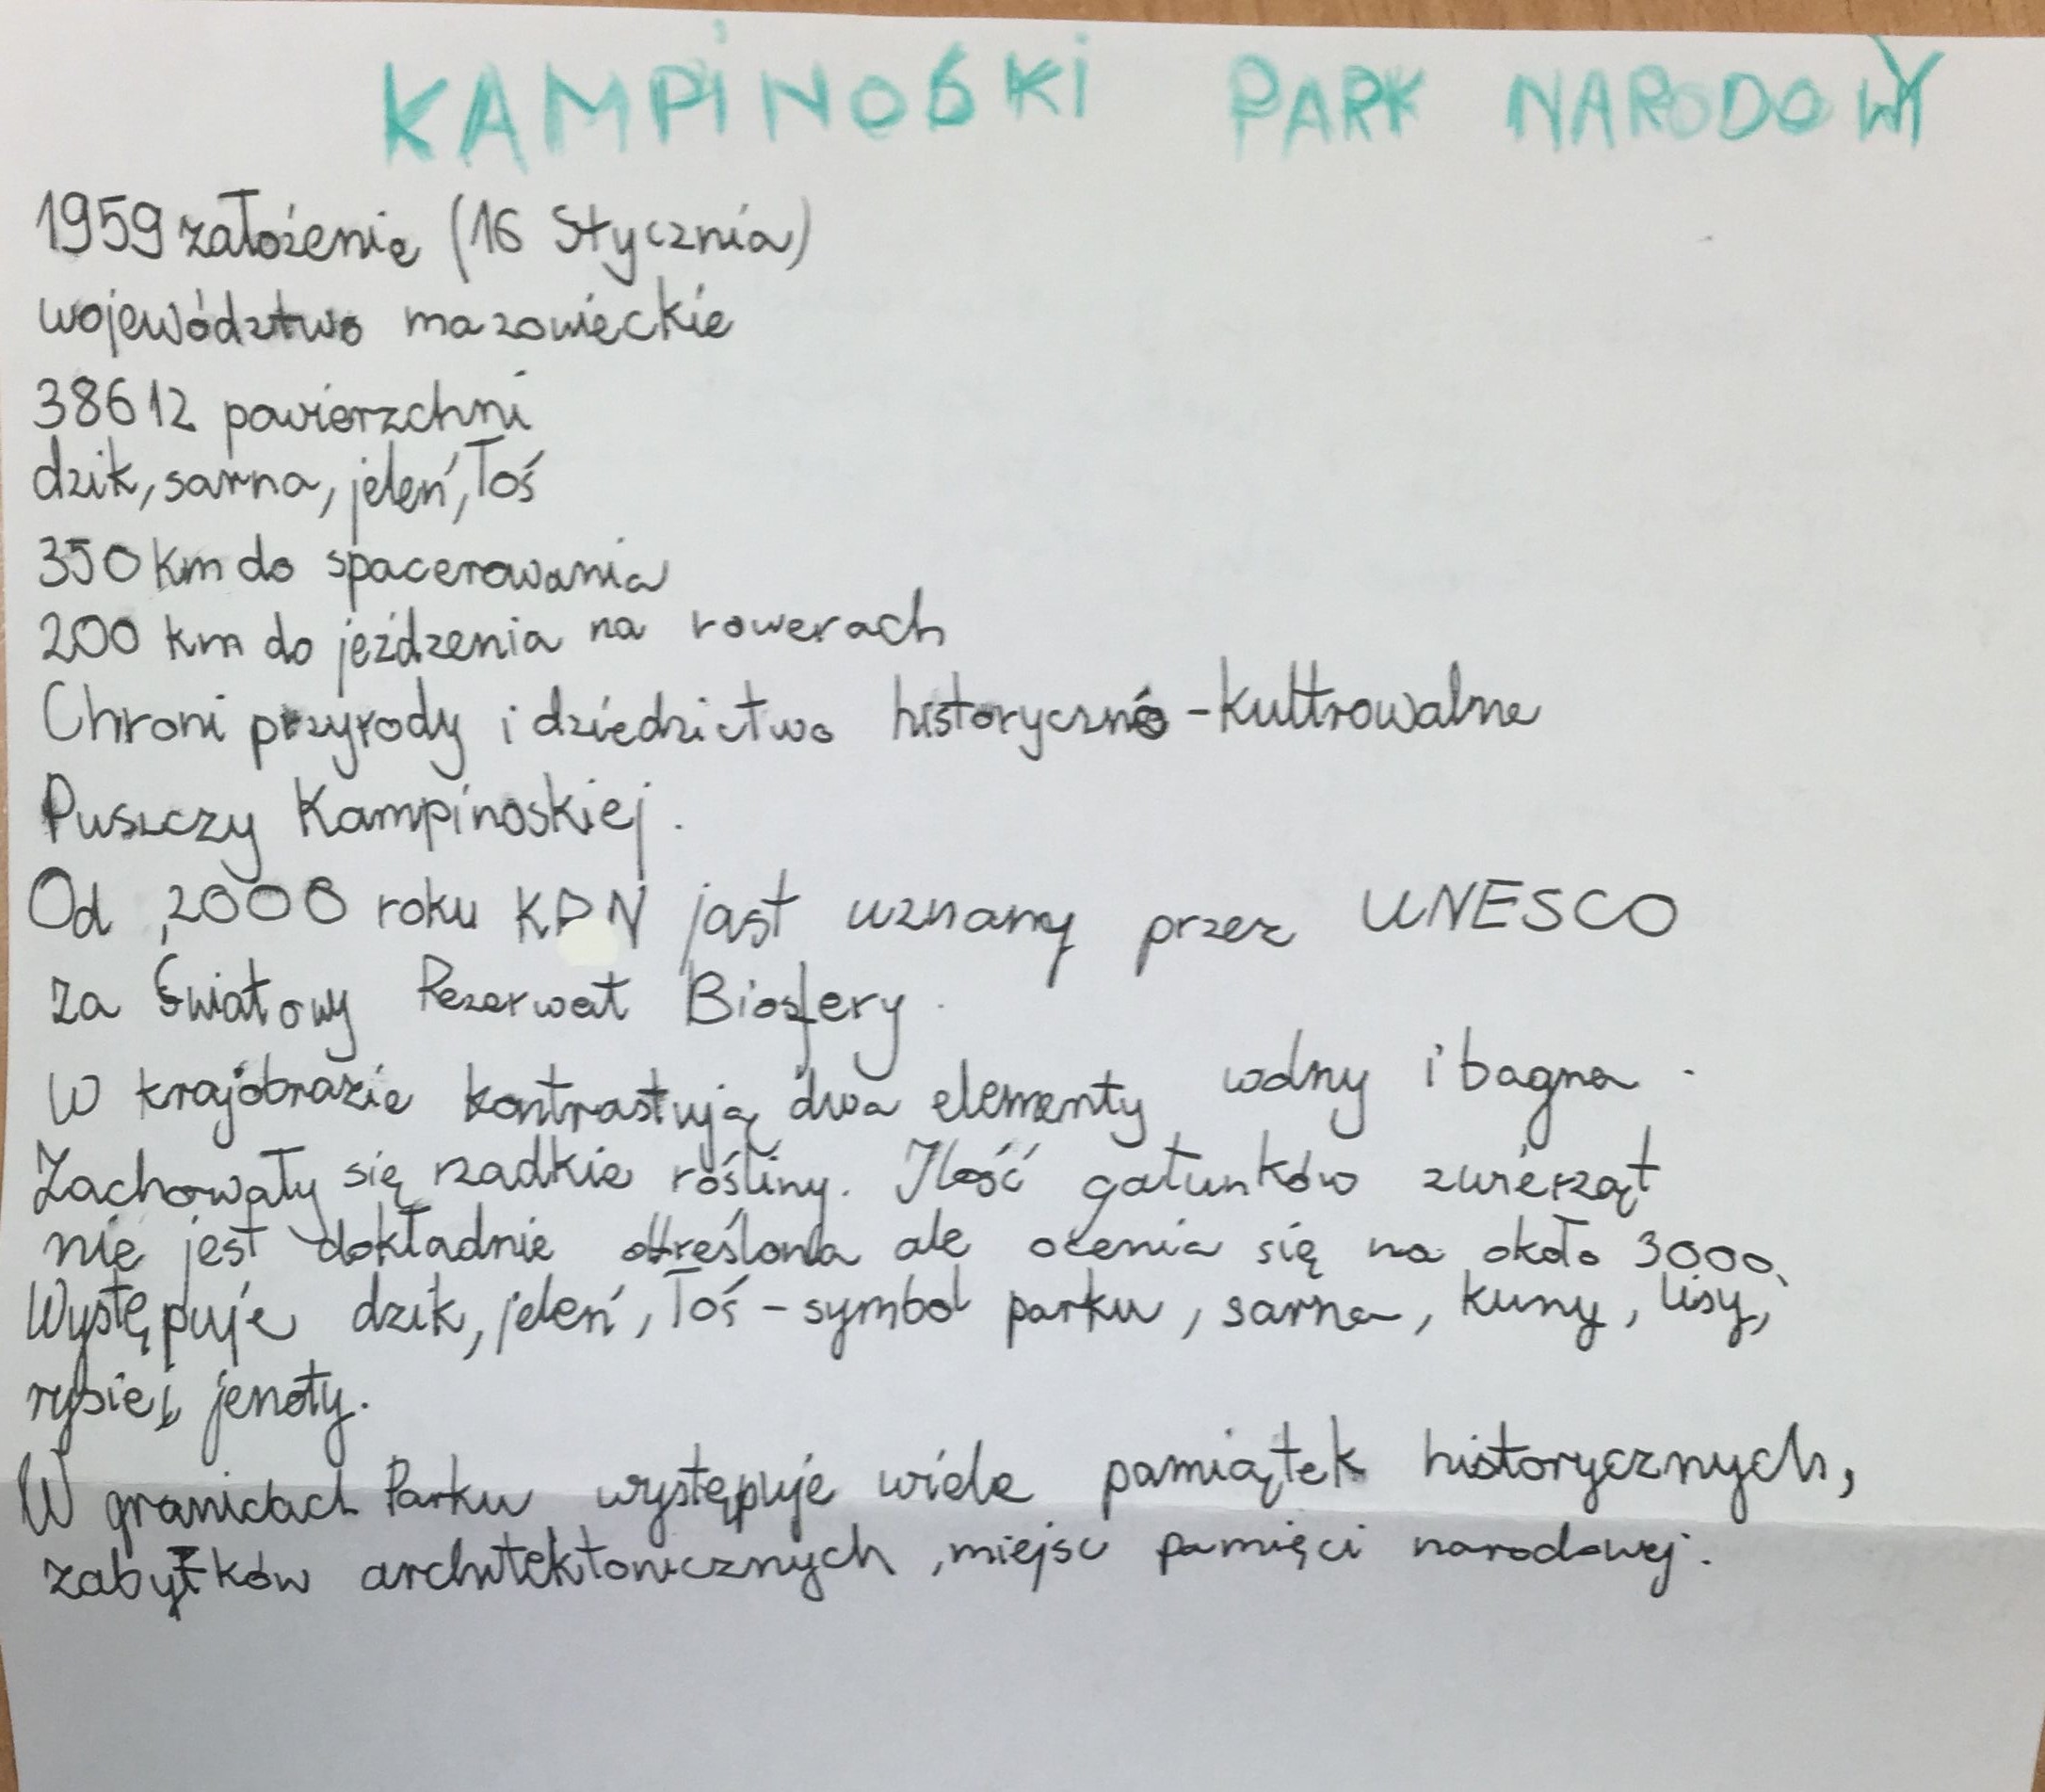 KAMPINOSKI PARK NARODOWY
1959 założenie (16 Stycznia)
województwo mazowieckie
38612 powierzchni
dzik, sarna, jeleń, łoś
350 km do spacerowania
200 km do jeżdzenia na rowerach
Chroni przyrody i dziedzictwo historyczno-kultrowalne
Puszczy Kampinoskiej.
Od 2000 roku KPN jast uznany przez UNESCO
za Światowy Rezerwat Biosfery.
W krajobrazie kontrastują dwa elementy wdmy i bagna.
Zachowały się rzadkie rośliny. Ilość gatunków zwierząt
nie jest dokładnie określona ale ocenia się na około 3000.
Występuje dzik, jeleń, łoś - symbol parku, sarna, kuny, lisy,
rysie i jenoty.
W granicach Parku występuje wiele pamiątek historycznych,
zabytków architektonicznych, miejsc pamięci narodowej.